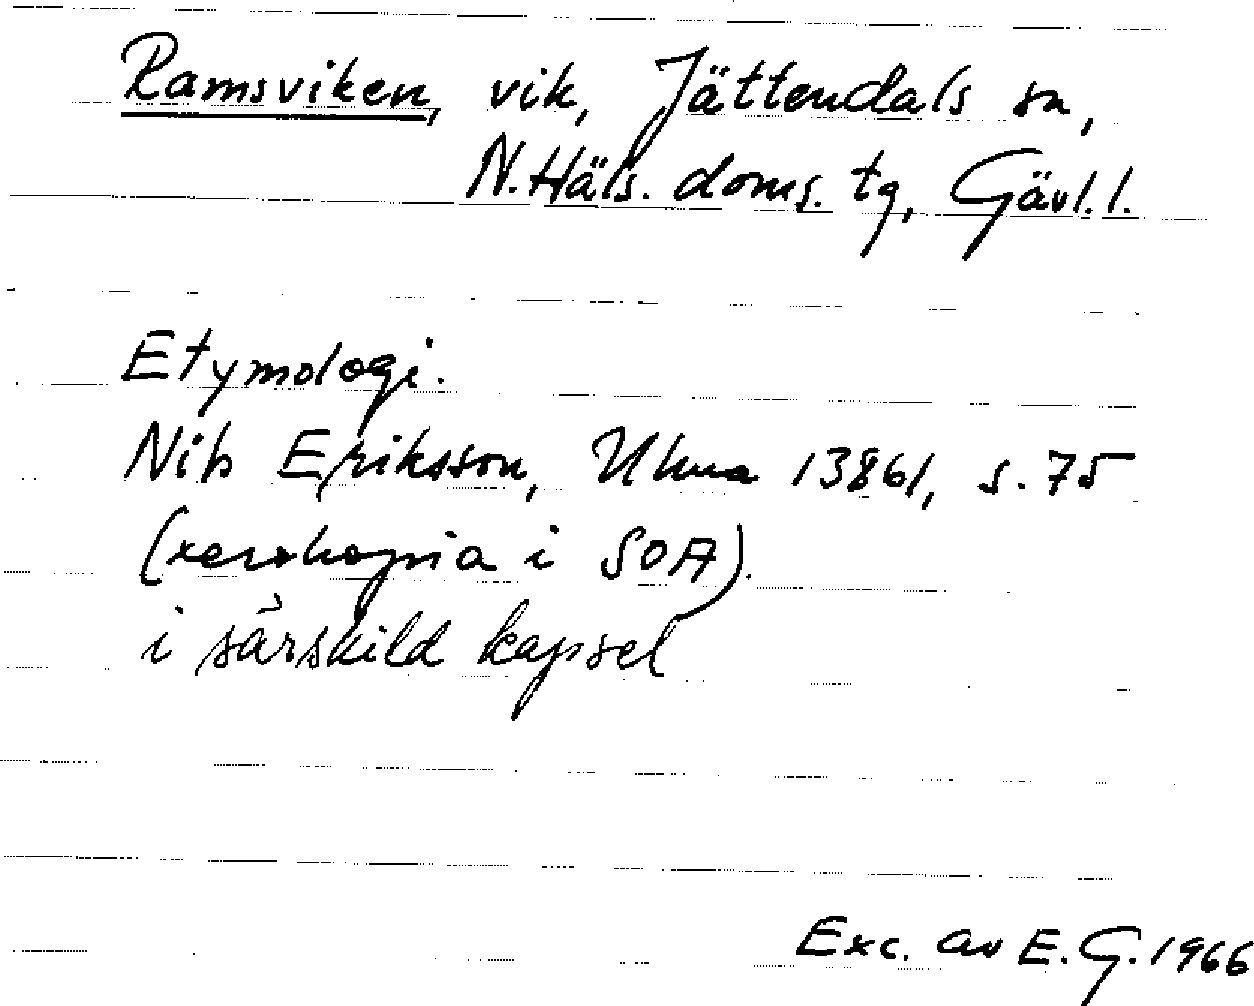 Ramsviken, vik, Jättendals sn,
N. Häls. doms. tg, Gävl. l.
Etymologi.
Nils Eriksson, Uluma 13861, s. 75
(xerokopia i SOA).
i särskild kapsel
Exc. av E. G. 1966